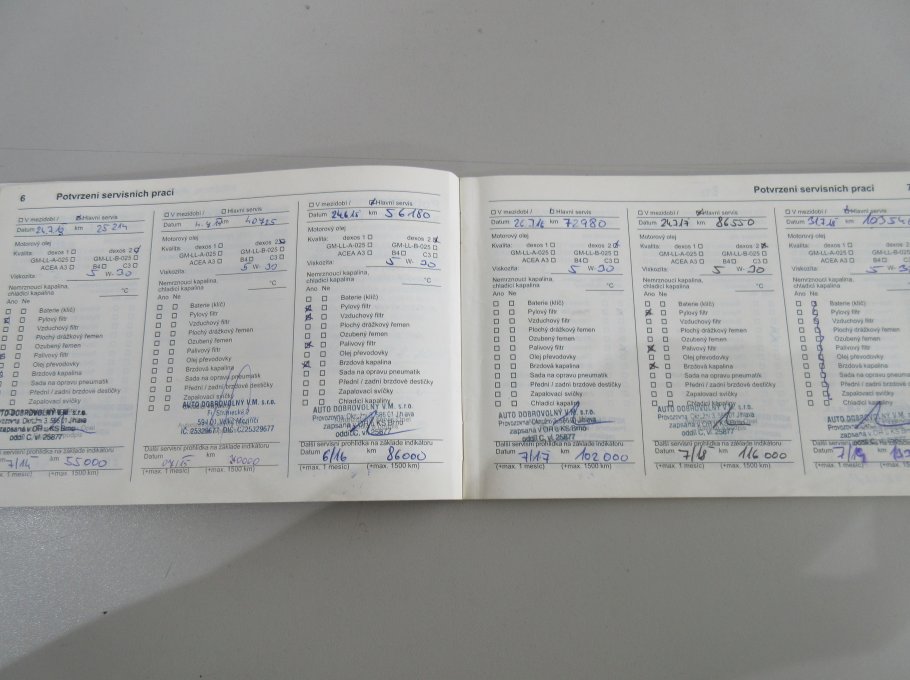 6 Potvrzení servisních prací
V mezidobí / Hlavní servis
Datum 24.7.13 km 25 214
Motorový olej
Kvalita: dexos 1 dexos 2
GM-LL-A-025 GM-LL-B-025
ACEA A3 B4 C3
Viskozita: 5 W- 30
Nemrznoucí kapalina,
chladicí kapalina °C
Ano Ne
Baterie (klíč)
Pylový filtr
Vzduchový filtr
Plochý drážkový řemen
Ozubený řemen
Palivový filtr
Olej převodovky
Brzdová kapalina
Sada na opravu pneumatik
Přední / zadní brzdové destičky
Zapalovací svíčky
AUTO DOBROVOLNÝ V.M. s.r.o.
zapsana v OR u KS Brno
oddíl C, vl. 25877
servisní prohlídka na základě indikátoru
7/14 km 55000
(+max. 1 měsíc) (+max. 1500 km)
V mezidobí / Hlavní servis
Datum km 40725
Motorový olej
Kvalita: dexos 1 dexos 2
GM-LL-A-025 GM-LL-B-025
ACEA A3 B4 C3
Viskozita: 5 W- 30
Nemrznoucí kapalina,
chladicí kapalina °C
Ano Ne
Baterie (klíč)
Pylový filtr
Vzduchový filtr
Plochý drážkový řemen
Ozubený řemen
Palivový filtr
Olej převodovky
Brzdová kapalina
Sada na opravu pneumatik
Přední / zadní brzdové destičky
Zapalovací svíčky
AUTO DOBROVOLNÝ V.M. s.r.o.
Další servisní prohlídka na základě indikátoru
Datum km
(+max. 1 měsíc) (+max. 1500 km)
V mezidobí / Hlavní servis
Datum 24.6.15 km 56180
Motorový olej
Kvalita: dexos 1 dexos 2
GM-LL-A-025 GM-LL-B-025
ACEA A3 B4 C3
Viskozita: 5 W- 30
Nemrznoucí kapalina,
chladicí kapalina °C
Ano Ne
Baterie (klíč)
Pylový filtr
Vzduchový filtr
Plochý drážkový řemen
Ozubený řemen
Palivový filtr
Olej převodovky
Brzdová kapalina
Sada na opravu pneumatik
Přední / zadní brzdové destičky
Zapalovací svíčky
Chladicí kapalina
AUTO DOBROVOLNÝ V.M. s.r.o.
zapsana v OR u KS Brno
oddíl C, vl. 25877
Další servisní prohlídka na základě indikátoru
Datum 6/16 km 86000
(+max. 1 měsíc) (+max. 1500 km)
Potvrzení servisních prací 7
V mezidobí / Hlavní servis
Datum km 72980
Motorový olej
Kvalita: dexos 1 dexos 2
GM-LL-A-025 GM-LL-B-025
ACEA A3 B4 C3
Viskozita: 5 W- 30
Nemrznoucí kapalina,
chladicí kapalina °C
Ano Ne
Baterie (klíč)
Pylový filtr
Vzduchový filtr
Plochý drážkový řemen
Ozubený řemen
Palivový filtr
Olej převodovky
Brzdová kapalina
Sada na opravu pneumatik
Přední / zadní brzdové destičky
Zapalovací svíčky
Chladicí kapalina
AUTO DOBROVOLNÝ V.M. s.r.o.
zapsana v OR u KS Brno
oddíl C, vl. 25877
Další servisní prohlídka na základě indikátoru
Datum 7/17 km 102 000
(+max. 1 měsíc) (+max. 1500 km)
V mezidobí / Hlavní servis
Datum 24.7.17 km 86550
Motorový olej
Kvalita: dexos 1 dexos 2
GM-LL-A-025 GM-LL-B-025
ACEA A3 B4 C3
Viskozita: 5 W- 30
Nemrznoucí kapalina,
chladicí kapalina °C
Ano Ne
Baterie (klíč)
Pylový filtr
Vzduchový filtr
Plochý drážkový řemen
Ozubený řemen
Palivový filtr
Olej převodovky
Brzdová kapalina
Sada na opravu pneumatik
Přední / zadní brzdové destičky
Zapalovací svíčky
Chladicí kapalina
AUTO DOBROVOLNÝ V.M. s.r.o.
zapsana v OR u KS Brno
oddíl C, vl. 25877
Další servisní prohlídka na základě indikátoru
Datum 7/18 km 116 000
(+max. 1 měsíc) (+max. 1500 km)
V mezidobí / Hlavní servis
Datum km
Motorový olej
Kvalita: dexos 1
GM-LL-A-025
ACEA A3
Viskozita: 5 W-
Nemrznoucí kapalina,
chladicí kapalina
Ano Ne
Baterie (klíč)
Pylový filtr
Vzduchový filtr
Ozubený řemen
Palivový filtr
Olej převodovky
Brzdová kapalina
Přední / zadní
Zapalovací svíčky
Chladicí kapalina
AUTO DOBROVOLNÝ
Další servisní prohlídka na základě
Datum 7/19 km
(+max. 1 měsíc)